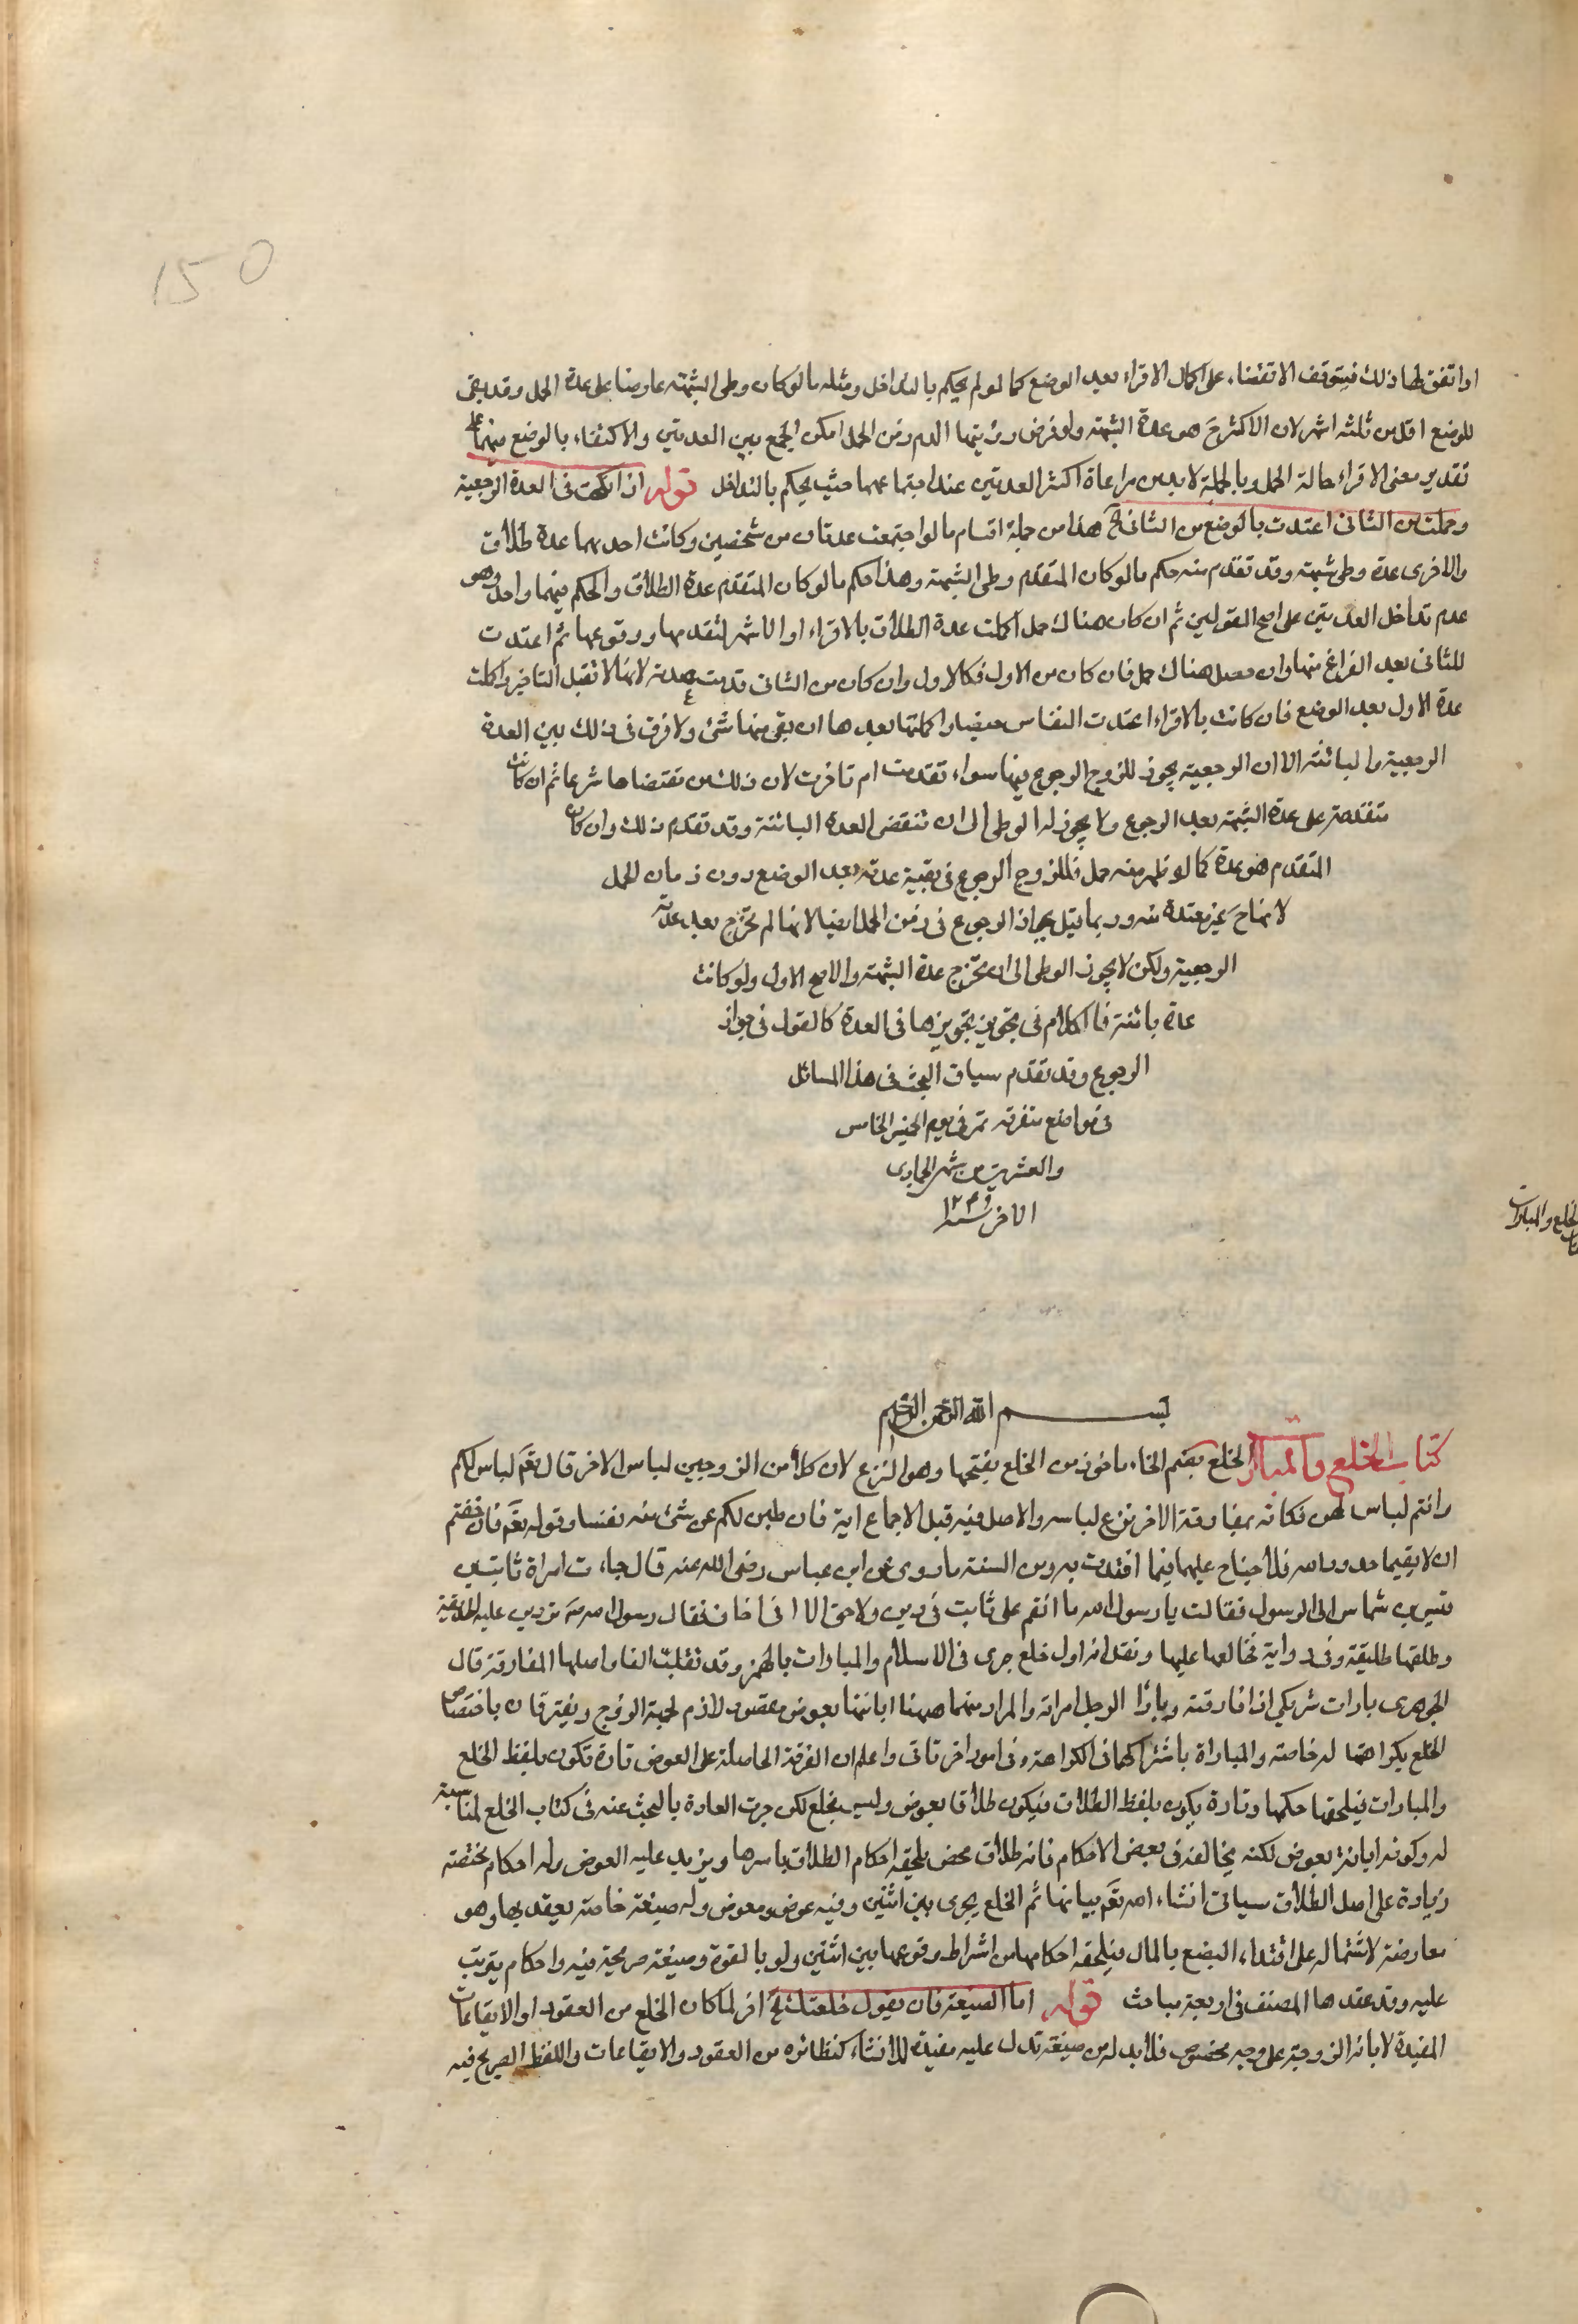 150
او اتفق لها ذلك فيتوقف الانقضاء على اكمال الاقراء بعد الوضع كما لو لم يحكم بالتداخل ومثله ما لو كان وطى الشبهة عارضا على عدة الحمل وقد بقى
للوضع اقل من ثلثة اشهر لان الاكثر ح هو عدة الشبهة ولو فرض رؤيتها الدم زمن الحمل امكن الجمع بين العدتين والاكتفاء بالوضع منهما على
تقدير مضى الاقراء حالة الحمل وبالجملة لا بد من مراعاة اكثر العدتين عند اجتماعهما حيث يحكم بالتداخل قوله اذا نكحت فى العدة الرجعية
وحملت من الثانى اعتدت بالوضع من الثانى الخ هذا من جملة اقسام ما لو اجتمعت عدتان من شخصين وكانت احديهما عدة طلاق
والاخرى عدة وطى شبهة وقد تقدم منه حكم ما لو كان المتقدم وطى الشبهة وهذا حكم ما لو كان المتقدم عدة الطلاق والحكم فيهما واحد وهو
عدم تداخل العدتين على اصح القولين ثم ان كان هناك حمل اكملت عدة الطلاق بالاقراء او الاشهر لتقدمها ووقوعها ثم اعتدت
للثانى بعد الفراغ منها وان حصل هناك حمل فان كان من الاول فكالاول وان كان من الثانى قدمت عدته لانها لا تقبل التاخير واكملت
عدة الاول بعد الوضع فان كانت بالاقراء اعتدت النفاس حيضا واكملتها بعدها ان بقى منها شئ ولا فرق فى ذلك بين العدة
الرجعية والبائنة الا ان الرجعية يجوز للزوج الرجوع فيها سواء تقدمت ام تاخرت لان ذلك من مقتضاها شرعا ثم ان كانت
متقدمة على عدة الشبهة بعد الرجوع ولا يجوز له الوطى الى ان تنقضى العدة البائنة وقد تقدم ذلك وان كان
المتقدم هو عدة كما لو ظهر منه حمل فللزوج الرجوع فى بقية عدته بعد الوضع دون زمان الحمل
لانها ح غير معتدة منه وربما قيل بجواز الرجوع فى زمن الحمل ايضا لانها لم تخرج بعد عدته
الرجعية ولكن لا يجوز الوطى الى ان تخرج عدة الشبهة والاصح الاول ولو كانت
عدة بائنة فالكلام فى تجويز تزويجها فى العدة كالقول فى جواز
الرجوع وقد تقدم سياق البحث فى هذا المسائل
فى مواضع متفرقة تم فى يوم الخميس الخامس
والعشرين من شهر الجمادى
الاخر سنة
الخلع والمبارات
بسم الله الرحمن الرحيم
كتاب الخلع والمبارات الخلع بضم الخاء ماخوذ من الخلع بفتحها وهو النزع لان كلا من الزوجين لباس الاخر قال تعم هن لباس لكم
وانتم لباس لهن فكانه بمفارقة الاخر نزع لباسه والاصل فيه قبل الاجماع اية فان طبن لكم عن شئ منه نفسا وقوله تعم فان خفتم
ان لا يقيما حدود الله فلا جناح عليهما فيما افتدت به ومن السنة ما روى عن ابن عباس رضى الله عنه قال جاءت امراة ثابت بن
قيس بن شماس الى الرسول فقالت يا رسول الله ما انقم على ثابت فى دين ولا خلق الا انى اخاف فقال رسول الله ص تردين عليه الحديقة
وطلقها طليقة وفى رواية فخالعها عليها ونقل انه اول خلع جرى فى الاسلام والمبارات بالهمز وقد تقلب الفا واصلها المفارقة قال
الجوهرى بارات شريكى اذا فارقته وبارا الرجل امراته والمراد منهما هيهنا ابانتها بعوض مقصود لازم لجهة الزوج ويفترقان باختصاص
الخلع بكراهتها له خاصة والمباراة باشتراكهما فى الكراهة وفى امور اخر تاتى واعلم ان الفرقة الحاصلة على العوض تارة تكون بلفظ الخلع
والمبارات فيلحقها حكمها وتارة يكون بلفظ الطلاق فيكون طلاقا بعوض وليس بخلع لكن جرت العادة بالبحث عنه فى كتاب الخلع لمناسبته
له وكونه ابانة بعوض لكنه يخالفه فى بعض الاحكام فانه طلاق محض يلحقه احكام الطلاق باسرها ويزيد عليه العوض وله احكام مختصة
زيادة على اصل الطلاق سياتى انشاء الله تعم بيانها ثم الخلع يجرى بين اثنين وفيه عوض ومعوض وله صيغة خاصة يعقد بها وهو
معارضة لاشتماله على افتداء البضع بالمال فيلحقه احكامها من اشتراط وقوعها بين اثنين ولو بالقوة وصيغة صريحة فيه واحكام يترتب
عليه وقد عقدها المصنف فى اربعة مباحث قوله اما الصيغة فان يقول خلعتك الخ اخر لما كان الخلع من العقود او الايقاعات
المفيدة لابانة الزوجية على وجه مخصوص فلا بد له من صيغة تدل عليه مفيدة للانشاء كنظائره من العقود والايقاعات واللفظ الصريح فيه